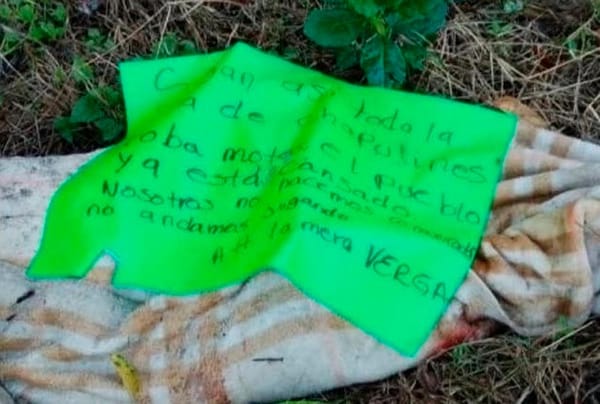 C an asi toda la
a de chapulines
roba motos el pueblo
ya está cansado
Nosotros no hacemos
no andamos jugando
Att la mera VERGA